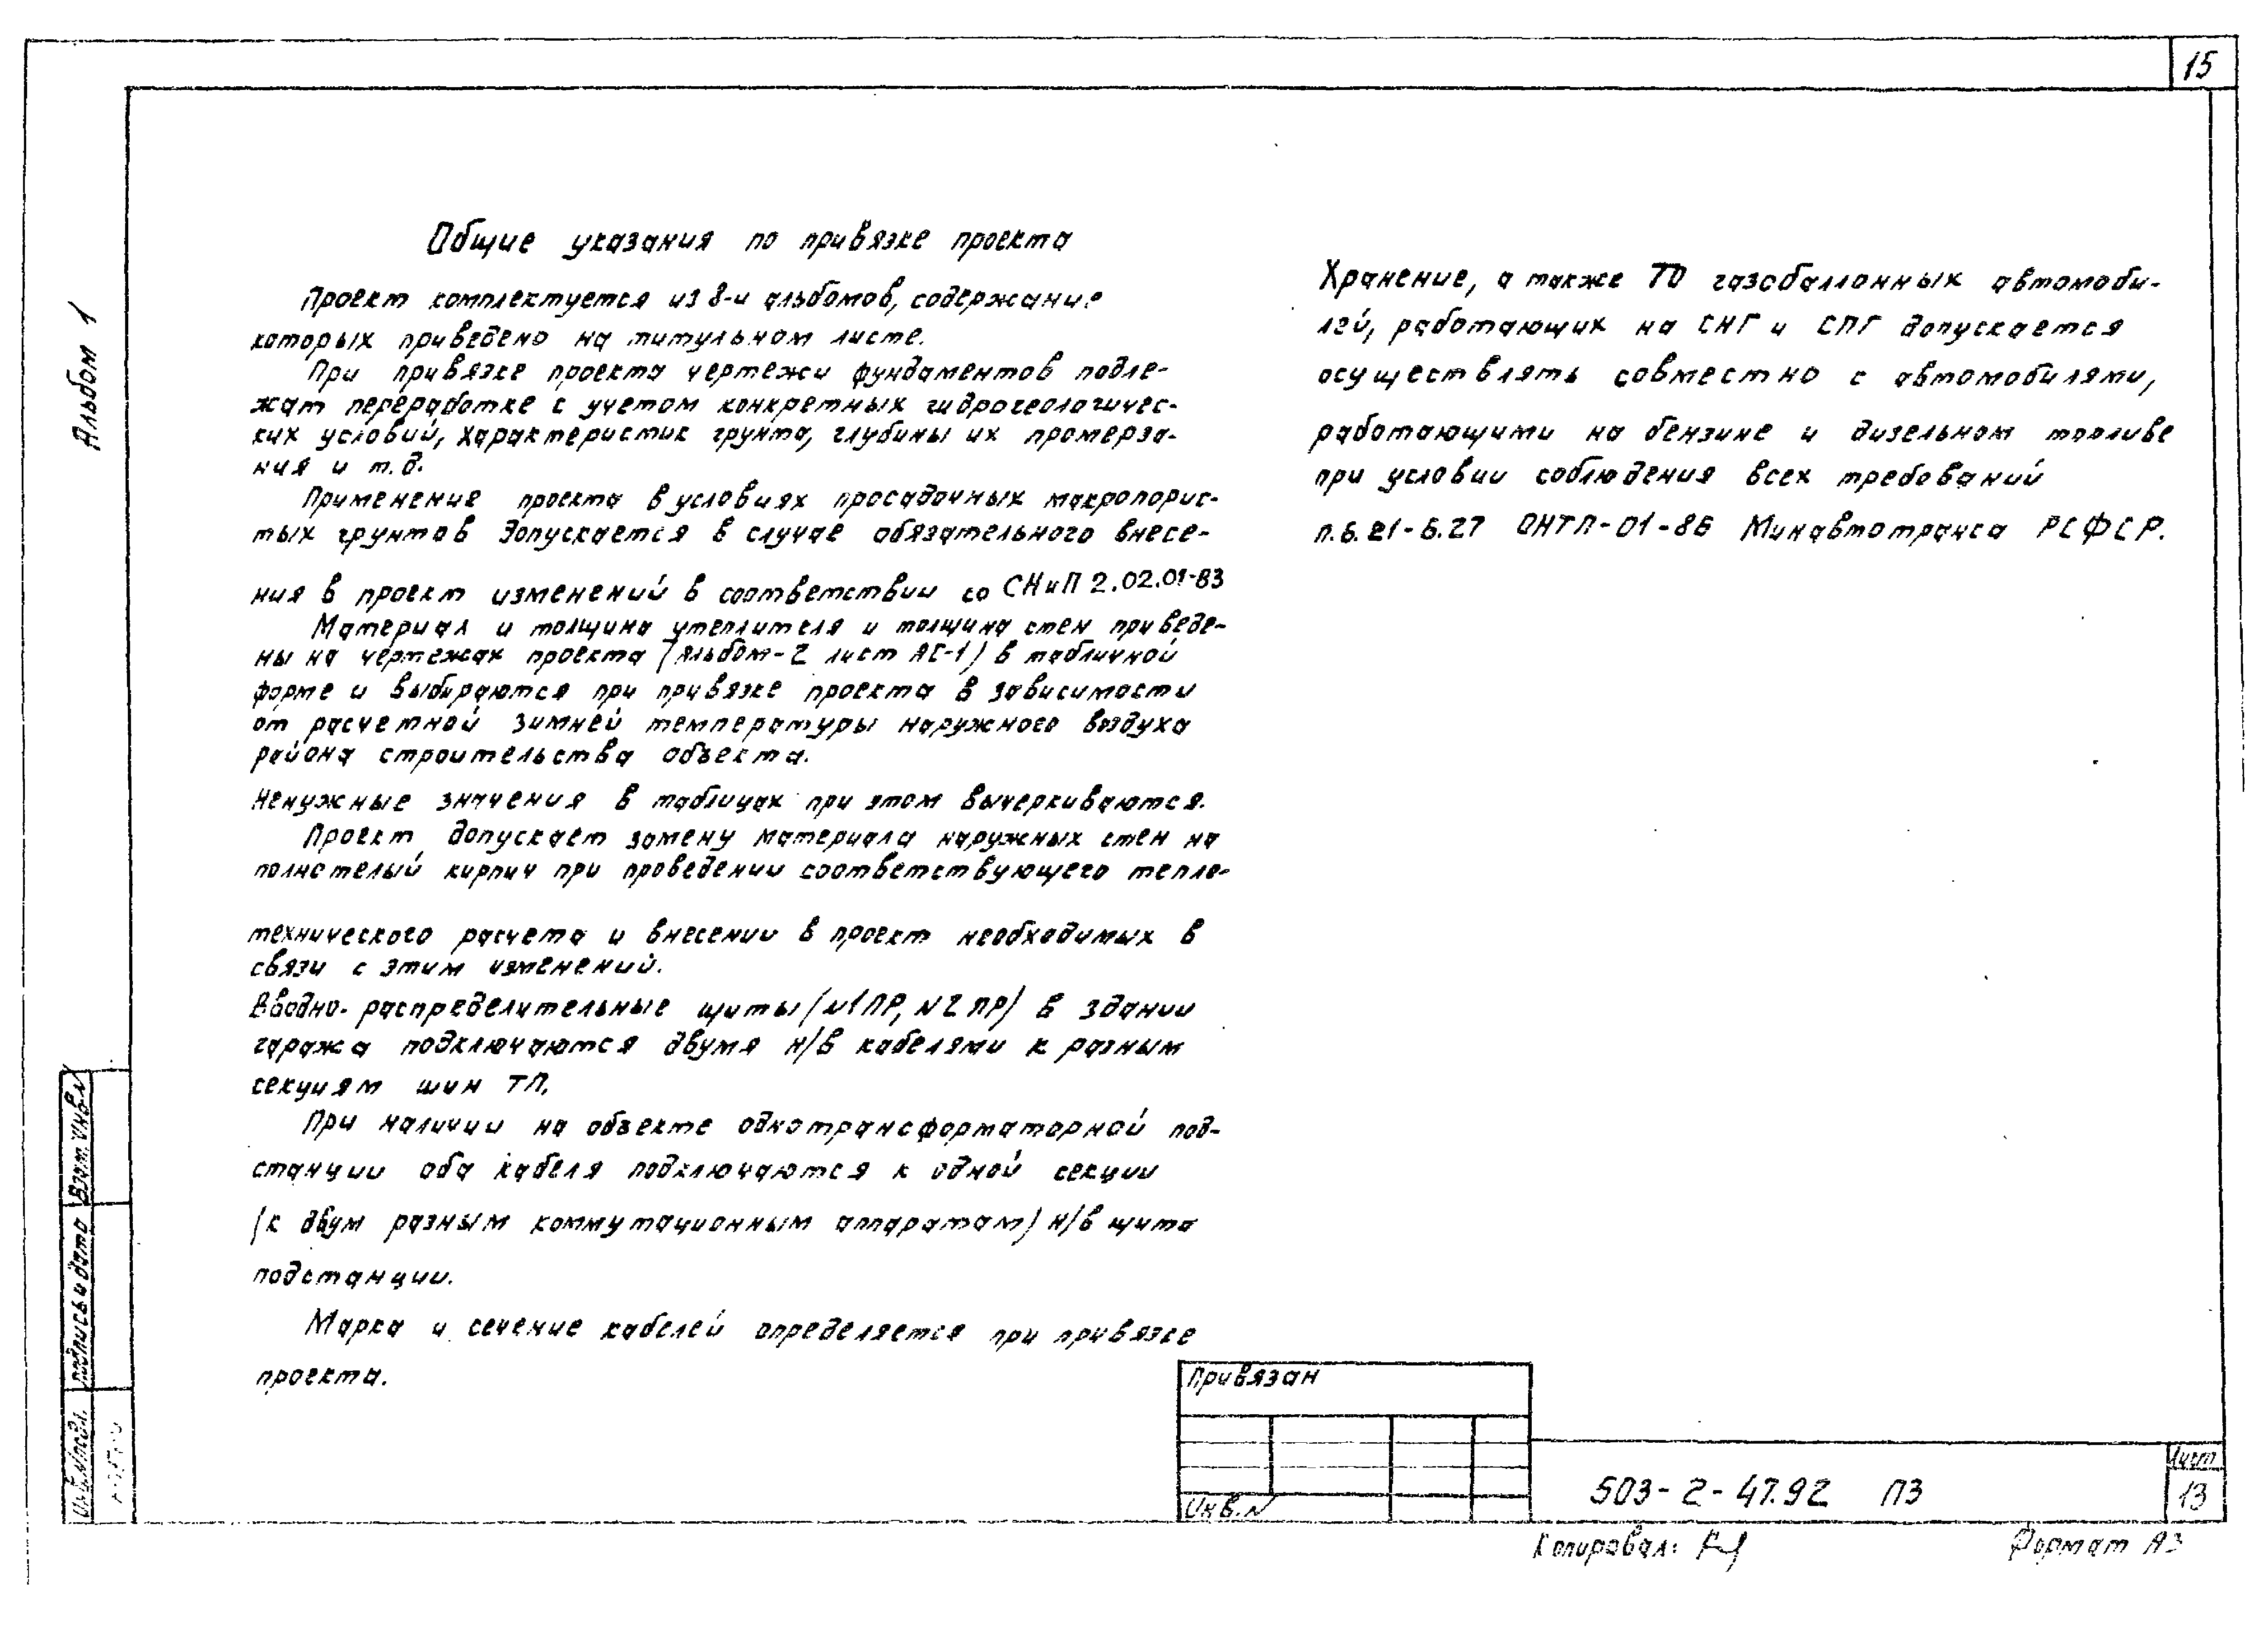 15
Альбом 1
Общие указания по привязке проекта
Проект комплектуется из 8-и альбомов, содержание
которых приведено на титульном листе.
При привязке проекта чертежи фундаментов подле-
жат переработке с учетом конкретных гидрогеологичес-
ких условий, характеристик грунта, глубины их промерза-
ния и т.д.
Применение проекта в условиях просадочных макропорис-
тых грунтов допускается в случае обязательного внесе-
ния в проект изменений в соответствии со СНиП 2.02.01-83
Материал и толщина утеплителя и толщина стен приведе-
ны на чертежах проекта (Альбом-2 лист АС-1) в табличной
форме и выбираются при привязке проекта в зависимости
от расчетной зимней температуры наружного воздуха
района строительства объекта.
Ненужные значения в таблицах при этом вычеркиваются.
Проект допускает замену материала наружных стен на
полнотелый кирпич при проведении соответствующего тепло-
технического расчета и внесении в проект необходимых в
связи с этим изменений.
Вводно-распределительные щиты (N1ПР, N2ПР) в здании
гаража подключаются двумя н/в кабелями к разным
секциям шин ТП.
При наличии на объекте однотрансформаторной под-
станции оба кабеля подключаются к одной секции
(к двум разным коммутационным аппаратам) н/в щита
подстанции.
Марка и сечение кабелей определяется при привязке
проекта.
Хранение, а также ТО газобаллонных автомоби-
лей, работающих на СНГ и СПГ допускается
осуществлять совместно с автомобилями,
работающими на бензине и дизельном топливе
при условии соблюдения всех требований
п.6.21-6.27 ОНТП-01-86 Минавтотранса РСФСР.
Взам.инв.N
Подпись и дата
Инв.Nподл.
Привязан
Инв.N
503-2-47.92 ПЗ
Лист
13
Копировал:
Формат А3